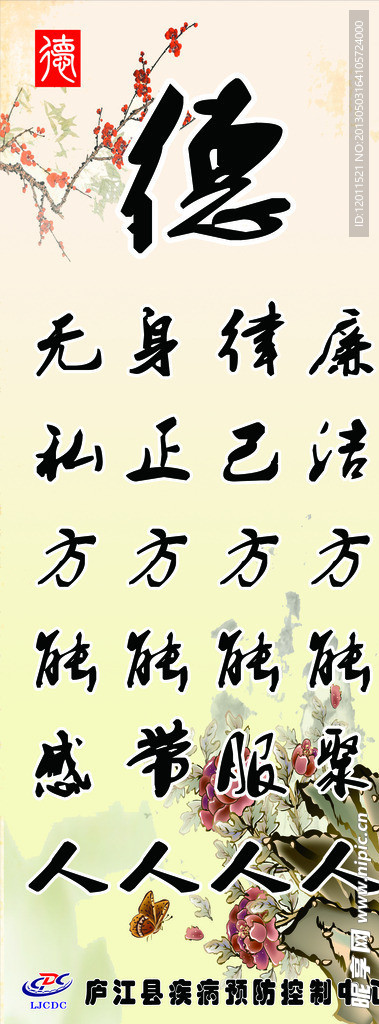 德
德
廉洁方能聚人
律己方能服人
身正方能带人
无私方能感人
LJCDC
庐江县疾病预防控制中心
ID:12011521 NO:20130503164105724000
昵享网 www.nipic.cn